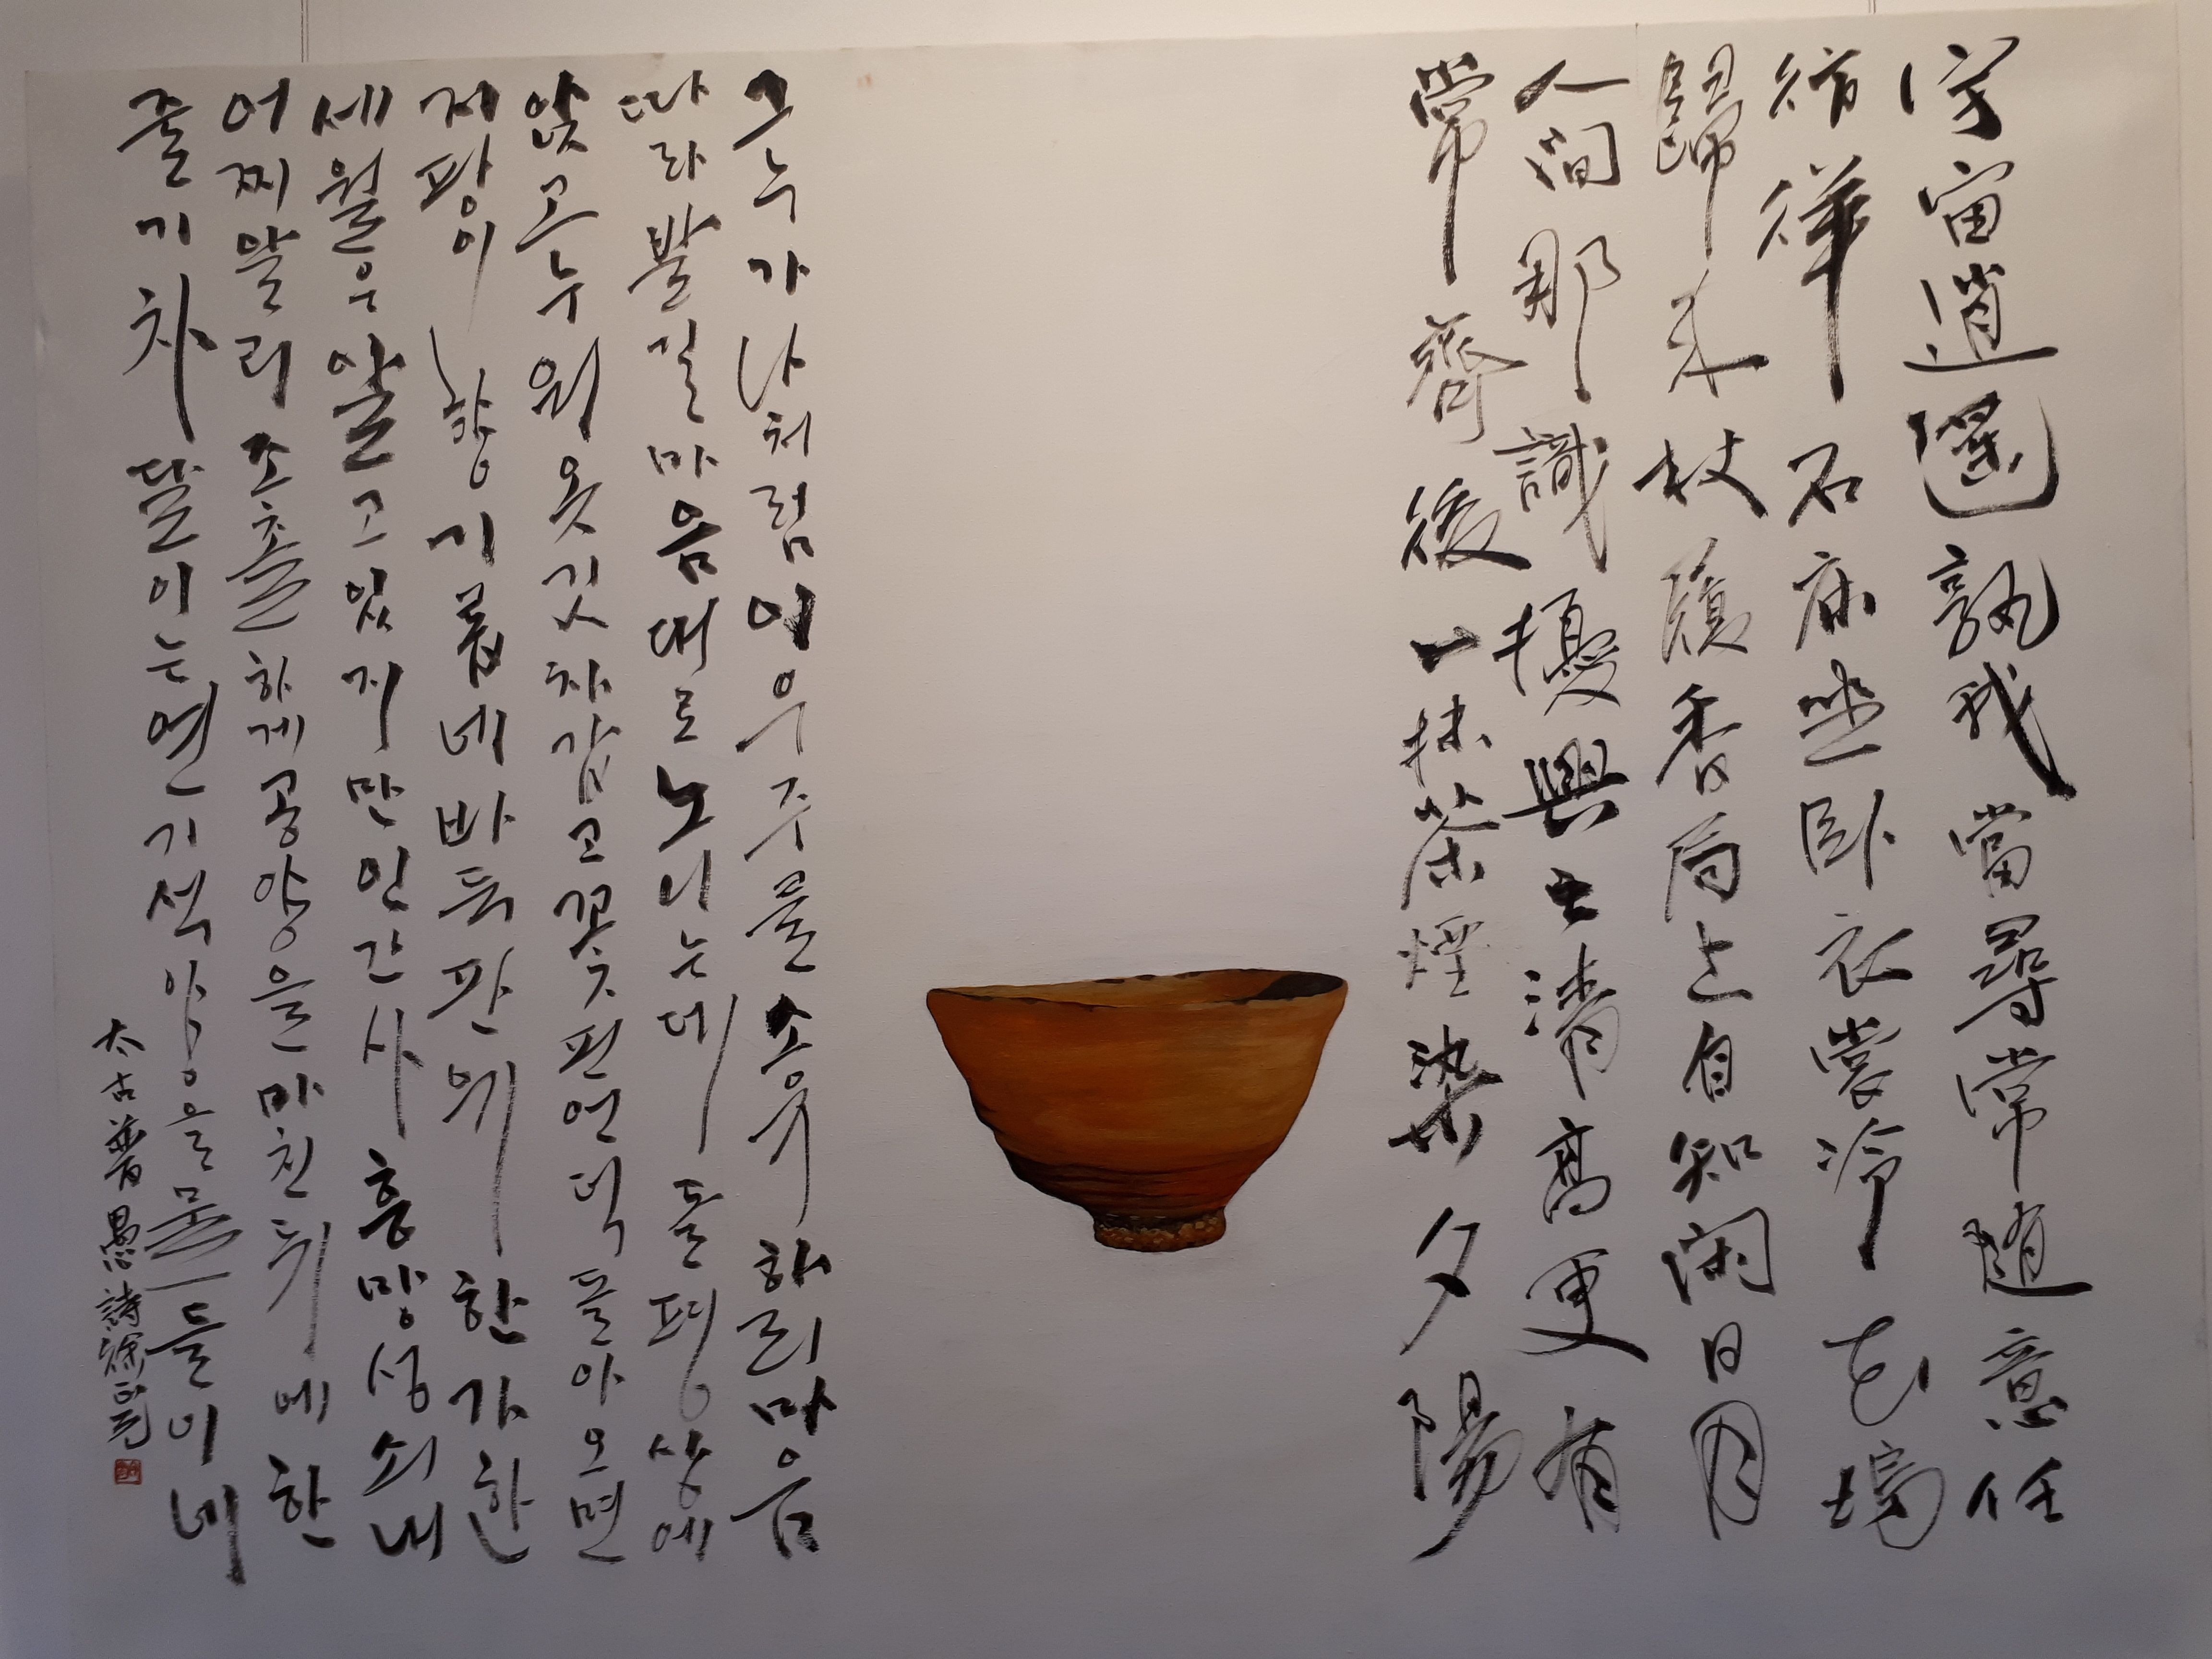 宇宙逍遙孰我當尋常隨意任
徜徉石床坐臥衣裳冷花塢
歸來杖屨香局上自知閑日月
人間那識擾興亡清高更有
常齊後一抹茶煙染夕陽
그 누가 나처럼 이 우주를 소유하리 마음
따라 발길 마음대로 노니는데 돌평상에
앉고 누워 옷깃 차갑고 꽃 핀 언덕 돌아오면
지팡이 향기롭네 바둑판 위 한가한
세월은 알고 있지만 인간사 흥망성쇠 내
어찌 알리 조촐하게 공양을 마친 뒤에 한
줄기 차 달이는 연기 석양을 물들이네
太古普愚詩